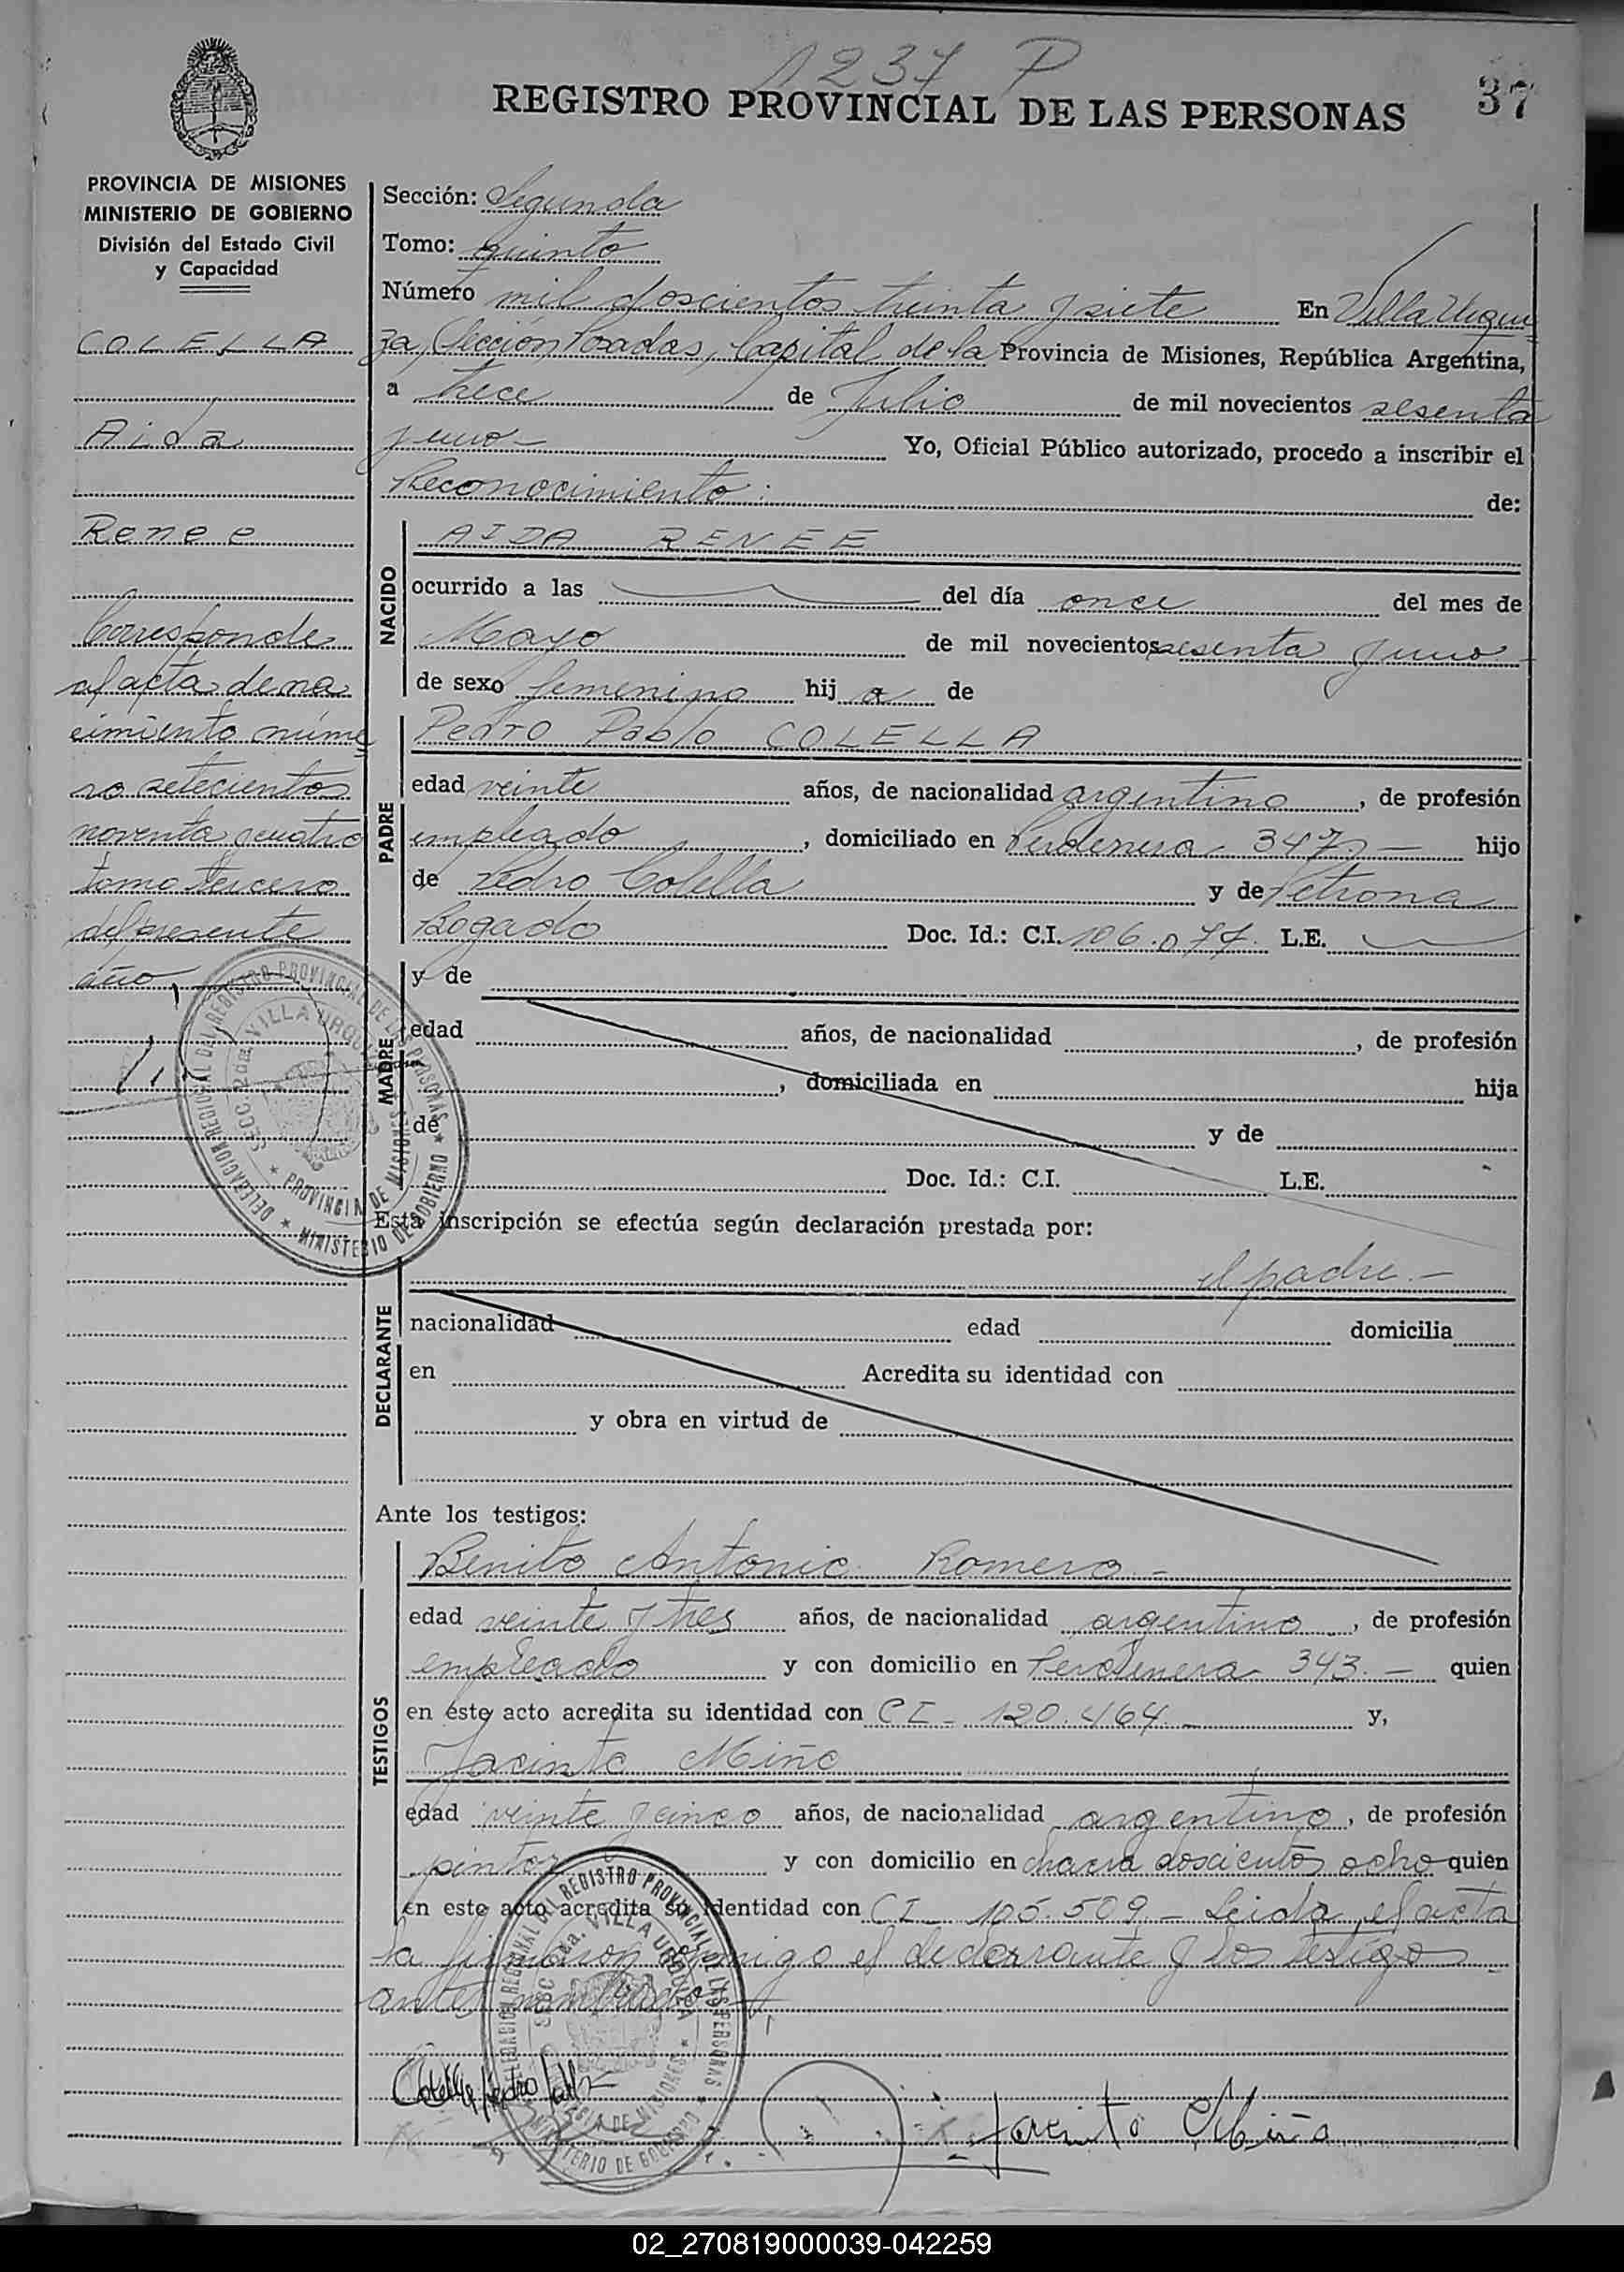 1237 P
REGISTRO PROVINCIAL DE LAS PERSONAS
37
PROVINCIA DE MISIONES
MINISTERIO DE GOBIERNO
División del Estado Civil
y Capacidad
COLELLA
Aida
Renee
Corresponde
al acta de na
cimiento núme
ro setecientos
noventa y cuatro
tomo tercero
del presente
año
Sección: Segunda
Tomo: quinto
Número mil doscientos treinta y siete En Villa Urqui
za, Sección Posadas, Capital de la Provincia de Misiones, República Argentina,
a trece de Julio de mil novecientos sesenta
y uno- Yo, Oficial Público autorizado, procedo a inscribir el
Reconocimiento: de:
NACIDO
AIDA RENEE
ocurrido a las del día once del mes de
Mayo de mil novecientos sesenta y uno-
de sexo femenino hij a de
PADRE
Pedro Pablo COLELLA
edad veinte años, de nacionalidad argentino, de profesión
empleado, domiciliado en Perdenera 347.- hijo
de Pedro Colella y de Petrona
Bogado Doc. Id.: C.I. 106.077. L.E.
MADRE
y de
edad años, de nacionalidad , de profesión
, domiciliada en hija
de y de
Doc. Id.: C.I. L.E.
Esta inscripción se efectúa según declaración prestada por:
el padre.-
DECLARANTE
nacionalidad edad domicilia
en Acredita su identidad con
y obra en virtud de
Ante los testigos:
TESTIGOS
Benito Antonio Romero-
edad veinte y tres años, de nacionalidad argentino, de profesión
empleado y con domicilio en Perdenera 343.- quien
en este acto acredita su identidad con CI- 120.464.- y,
Jacinto Miño
edad veinte y cinco años, de nacionalidad argentino, de profesión
pintor y con domicilio en chacra doscientos ocho quien
en este acto acredita su identidad con CI 105.509.- Leida el acta
la firmaron conmigo el declarante y los testigos
antes nombrados
DELEGACION REGIONAL DEL REGISTRO PROVINCIAL DE LAS PERSONAS
SECC. 2da. VILLA URQUIZA
PROVINCIA DE MISIONES
MINISTERIO DE GOBIERNO
DELEGACION REGIONAL DEL REGISTRO PROVINCIAL DE LAS PERSONAS
SECC. 2da. VILLA URQUIZA
PROVINCIA DE MISIONES
MINISTERIO DE GOBIERNO
Colella Pedro Pablo
Jacinto Miño
02_270819000039-042259